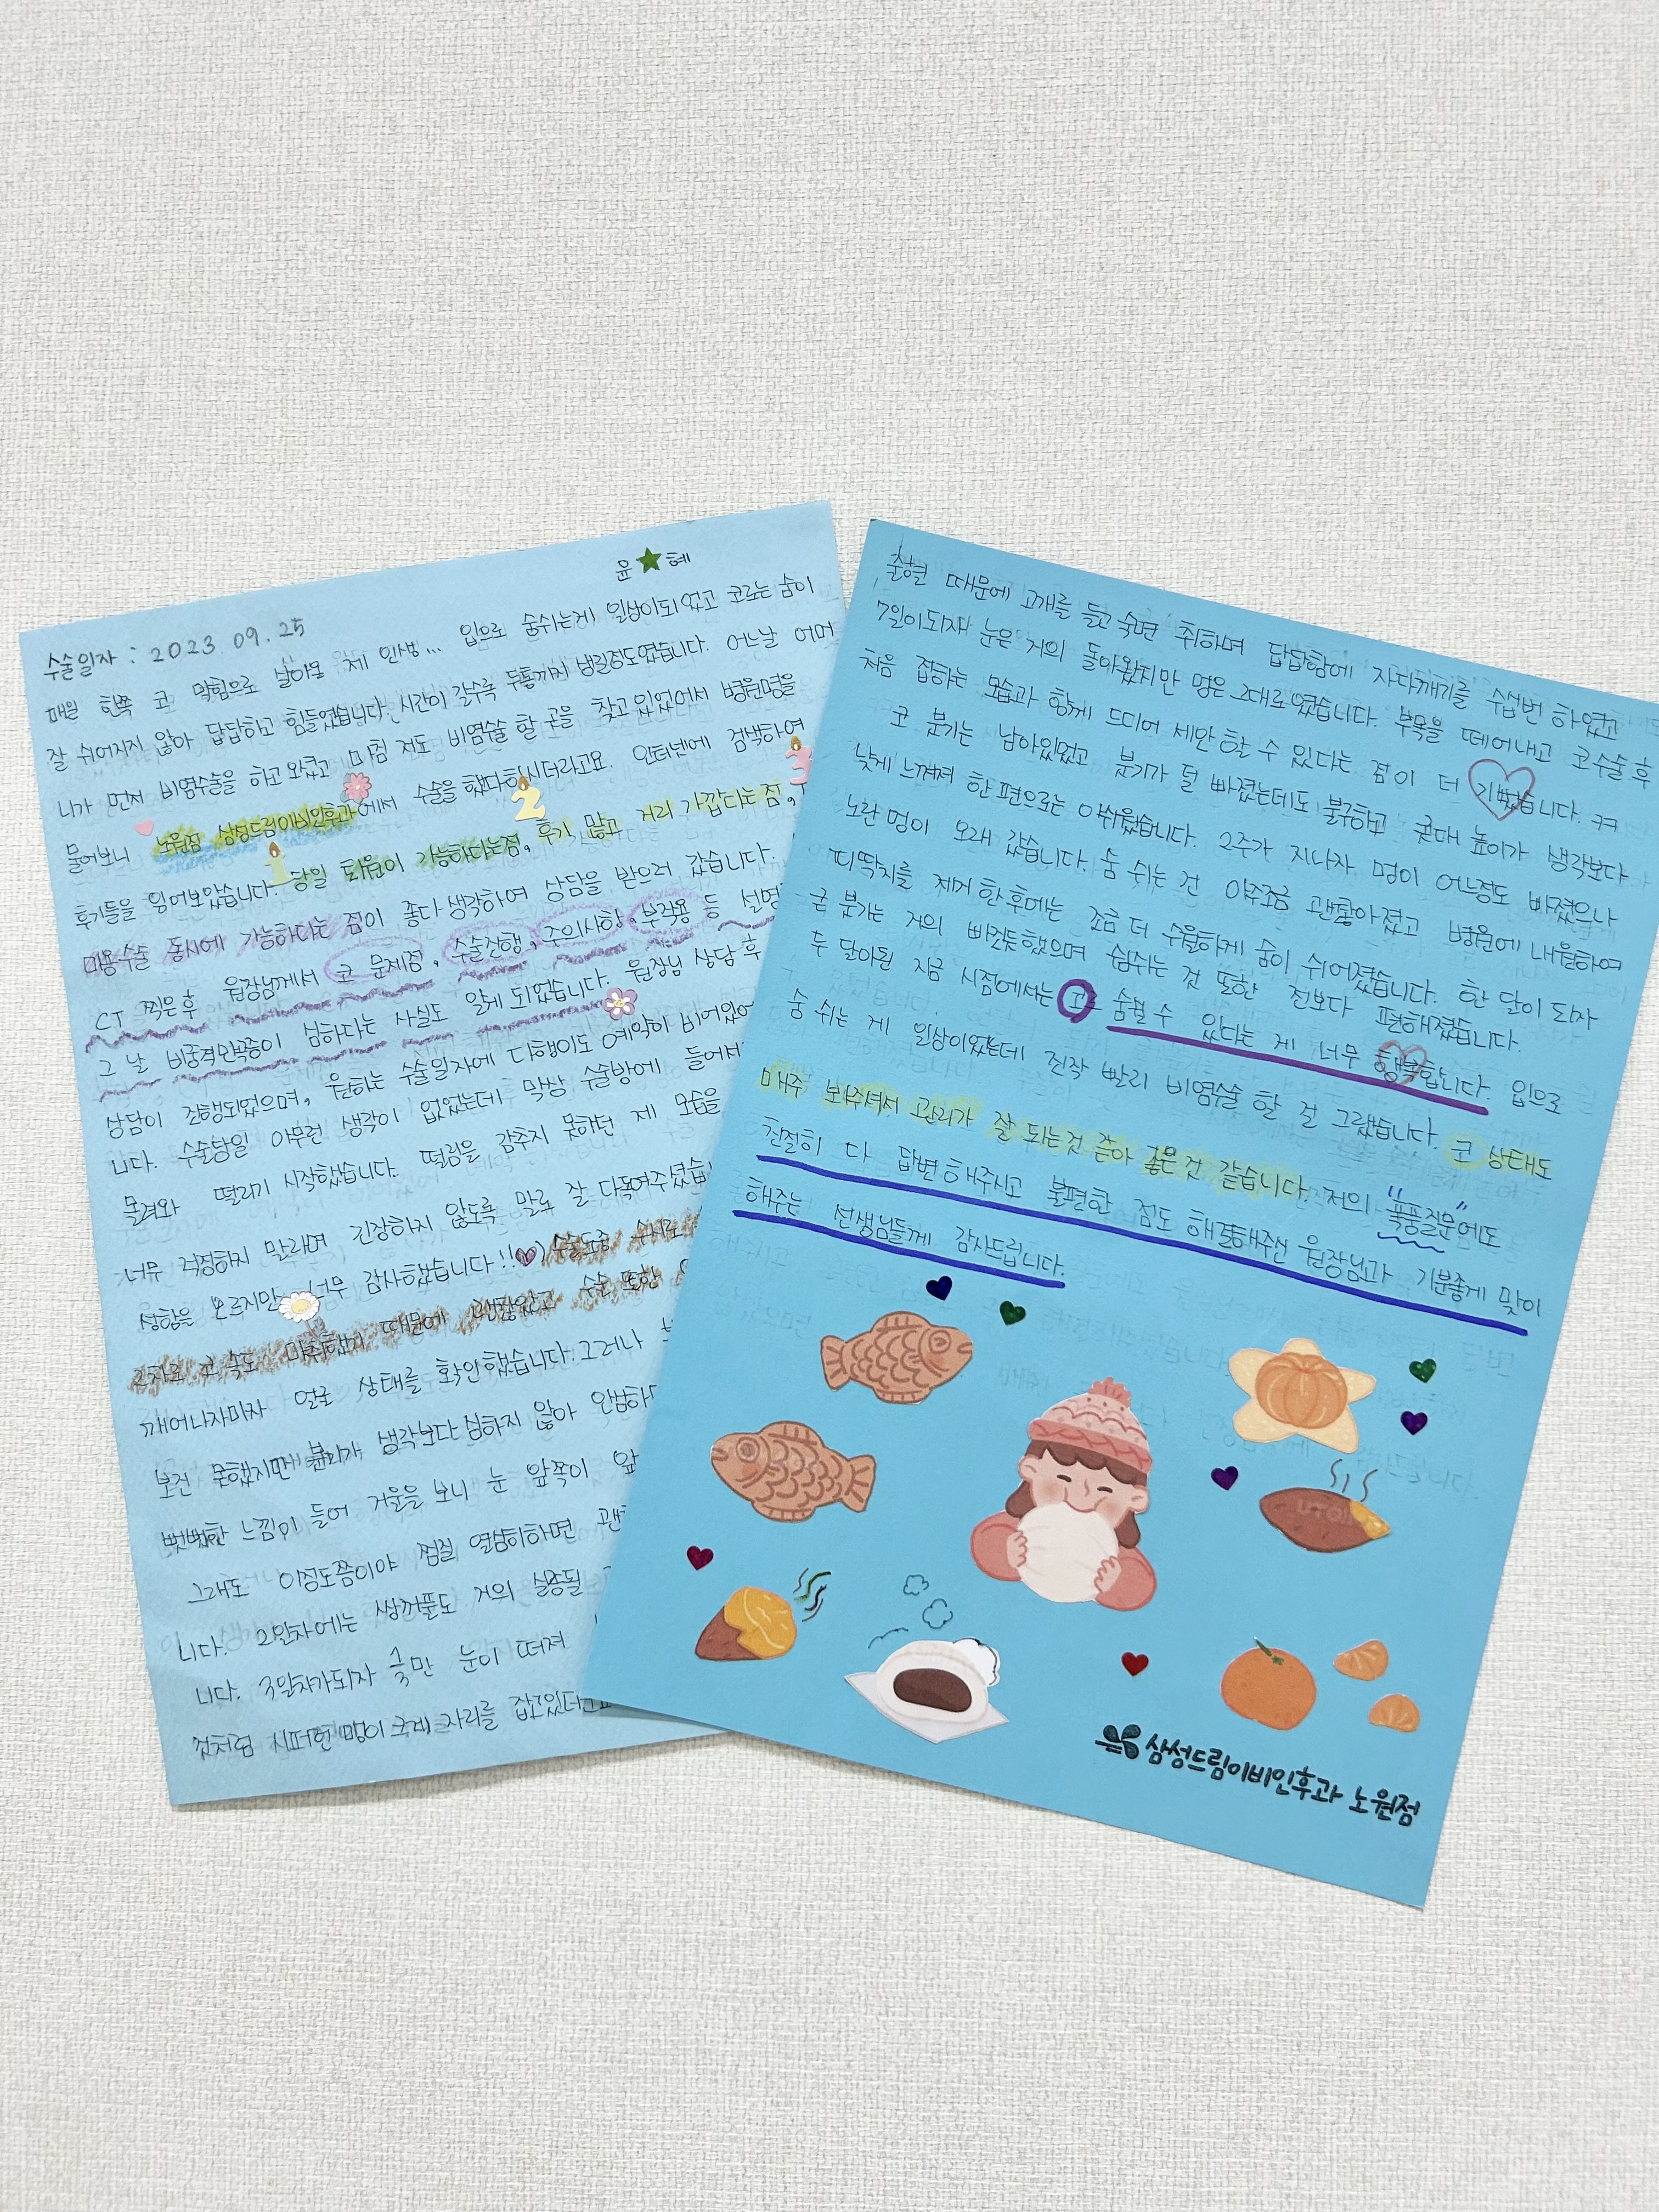 윤★혜
수술일자 : 2023 09.25
매일 한쪽 코 막힘으로 살아온 제 인생... 입으로 숨쉬는게 일상이되었고 코로는 숨이
잘 쉬어지지 않아 답답하고 힘들었습니다. 시간이 갈수록 두통까지 생길정도였습니다. 어느날 어머
니가 먼저 비염수술을 하고 오셨고 마침 저도 비염수술 할 곳을 찾고 있었어서 병원명을
물어보니 노원점 삼성드림이비인후과에서 수술을 했다하시더라고요. 인터넷에 검색하여
후기들을 읽어보았습니다. 1 당일 퇴원이 가능하다는점, 2 후기 많고 거리 가깝다는점, 3
미용수술 동시에 가능하다는 점이 좋다 생각하여 상담을 받으러 갔습니다.
CT 찍은 후 원장님께서 코 문제점, 수술진행, 주의사항, 부작용 등
그 날 비중격만곡증이 심하다는 사실도 알게 되었습니다. 원장님 상담 후
상담이 진행되었으며, 원하는 수술일자에 다행이도 예약이 비어있어
니다. 수술당일 아무런 생각이 없었는데 막상 수술방에 들어서
몰려와 떨리기 시작했습니다. 떨림을 감추지 못하던 제 모습을
너무 걱정하지 말라며 긴장하지 않도록 말로 잘 다독여주셨습
성함을 모르지만 너무 감사했습니다!! 수술도중 수시로
2차로 코 속도 마취했기 때문에 괜찮았고 수술 또한
깨어나자마자 얼굴 상태를 확인했습니다. 그러나
보진 못했지만 붓기가 생각보다 심하지 않아 안심하
뻣뻣한 느낌이 들어 거울을 보니 눈 앞쪽이
그래도 이정도쯤이야 찜질 열심히하면 괜찮
니다. 2일차에는 쌍꺼풀도 거의 실종될
니다. 3일차가되자 눈이 떠져
것처럼 시퍼런 멍이 자리를 잡고있더
출혈 때문에 고개를 들고 숙면 취하며 답답함에 자다깨기를 수십번 하였고
7일이되자 눈은 거의 돌아왔지만 멍은 그대로였습니다. 부목을 떼어내고 코수술 후
처음 접하는 모습과 함께 드디어 세안 할 수 있다는 점이 더 기뻤습니다. ㅋㅋ
코 붓기는 남아있었고 붓기가 덜 빠졌는데도 불구하고 콧대 높이가 생각보다
낮게 느껴져 한 편으로는 아쉬웠습니다. 2주가 지나자 멍이 어느정도 빠졌으나
노란 멍이 오래 갔습니다. 숨 쉬는 건 아주조금 괜찮아졌고 병원에 내원하여
피딱지를 제거 한 후에는 조금 더 수월하게 숨이 쉬어졌습니다. 한 달이 되자
큰 붓기는 거의 빠진듯했으며 숨쉬는 것 또한 전보다 편해졌습니다.
두 달이된 지금 시점에서는 코로 숨쉴 수 있다는 게 너무 행복합니다. 입으로
숨 쉬는 게 일상이였는데 진작 빨리 비염수술 할 걸 그랬습니다. 코 상태도
매주 봐주셔서 관리가 잘 되는것 같아 좋은 것 같습니다. 저의 "폭풍질문"에도
친절히 다 답변해주시고 불편한 점도 해결해주신 원장님과 기분좋게 맞이
해주는 선생님들께 감사드립니다.
삼성드림이비인후과 노원점